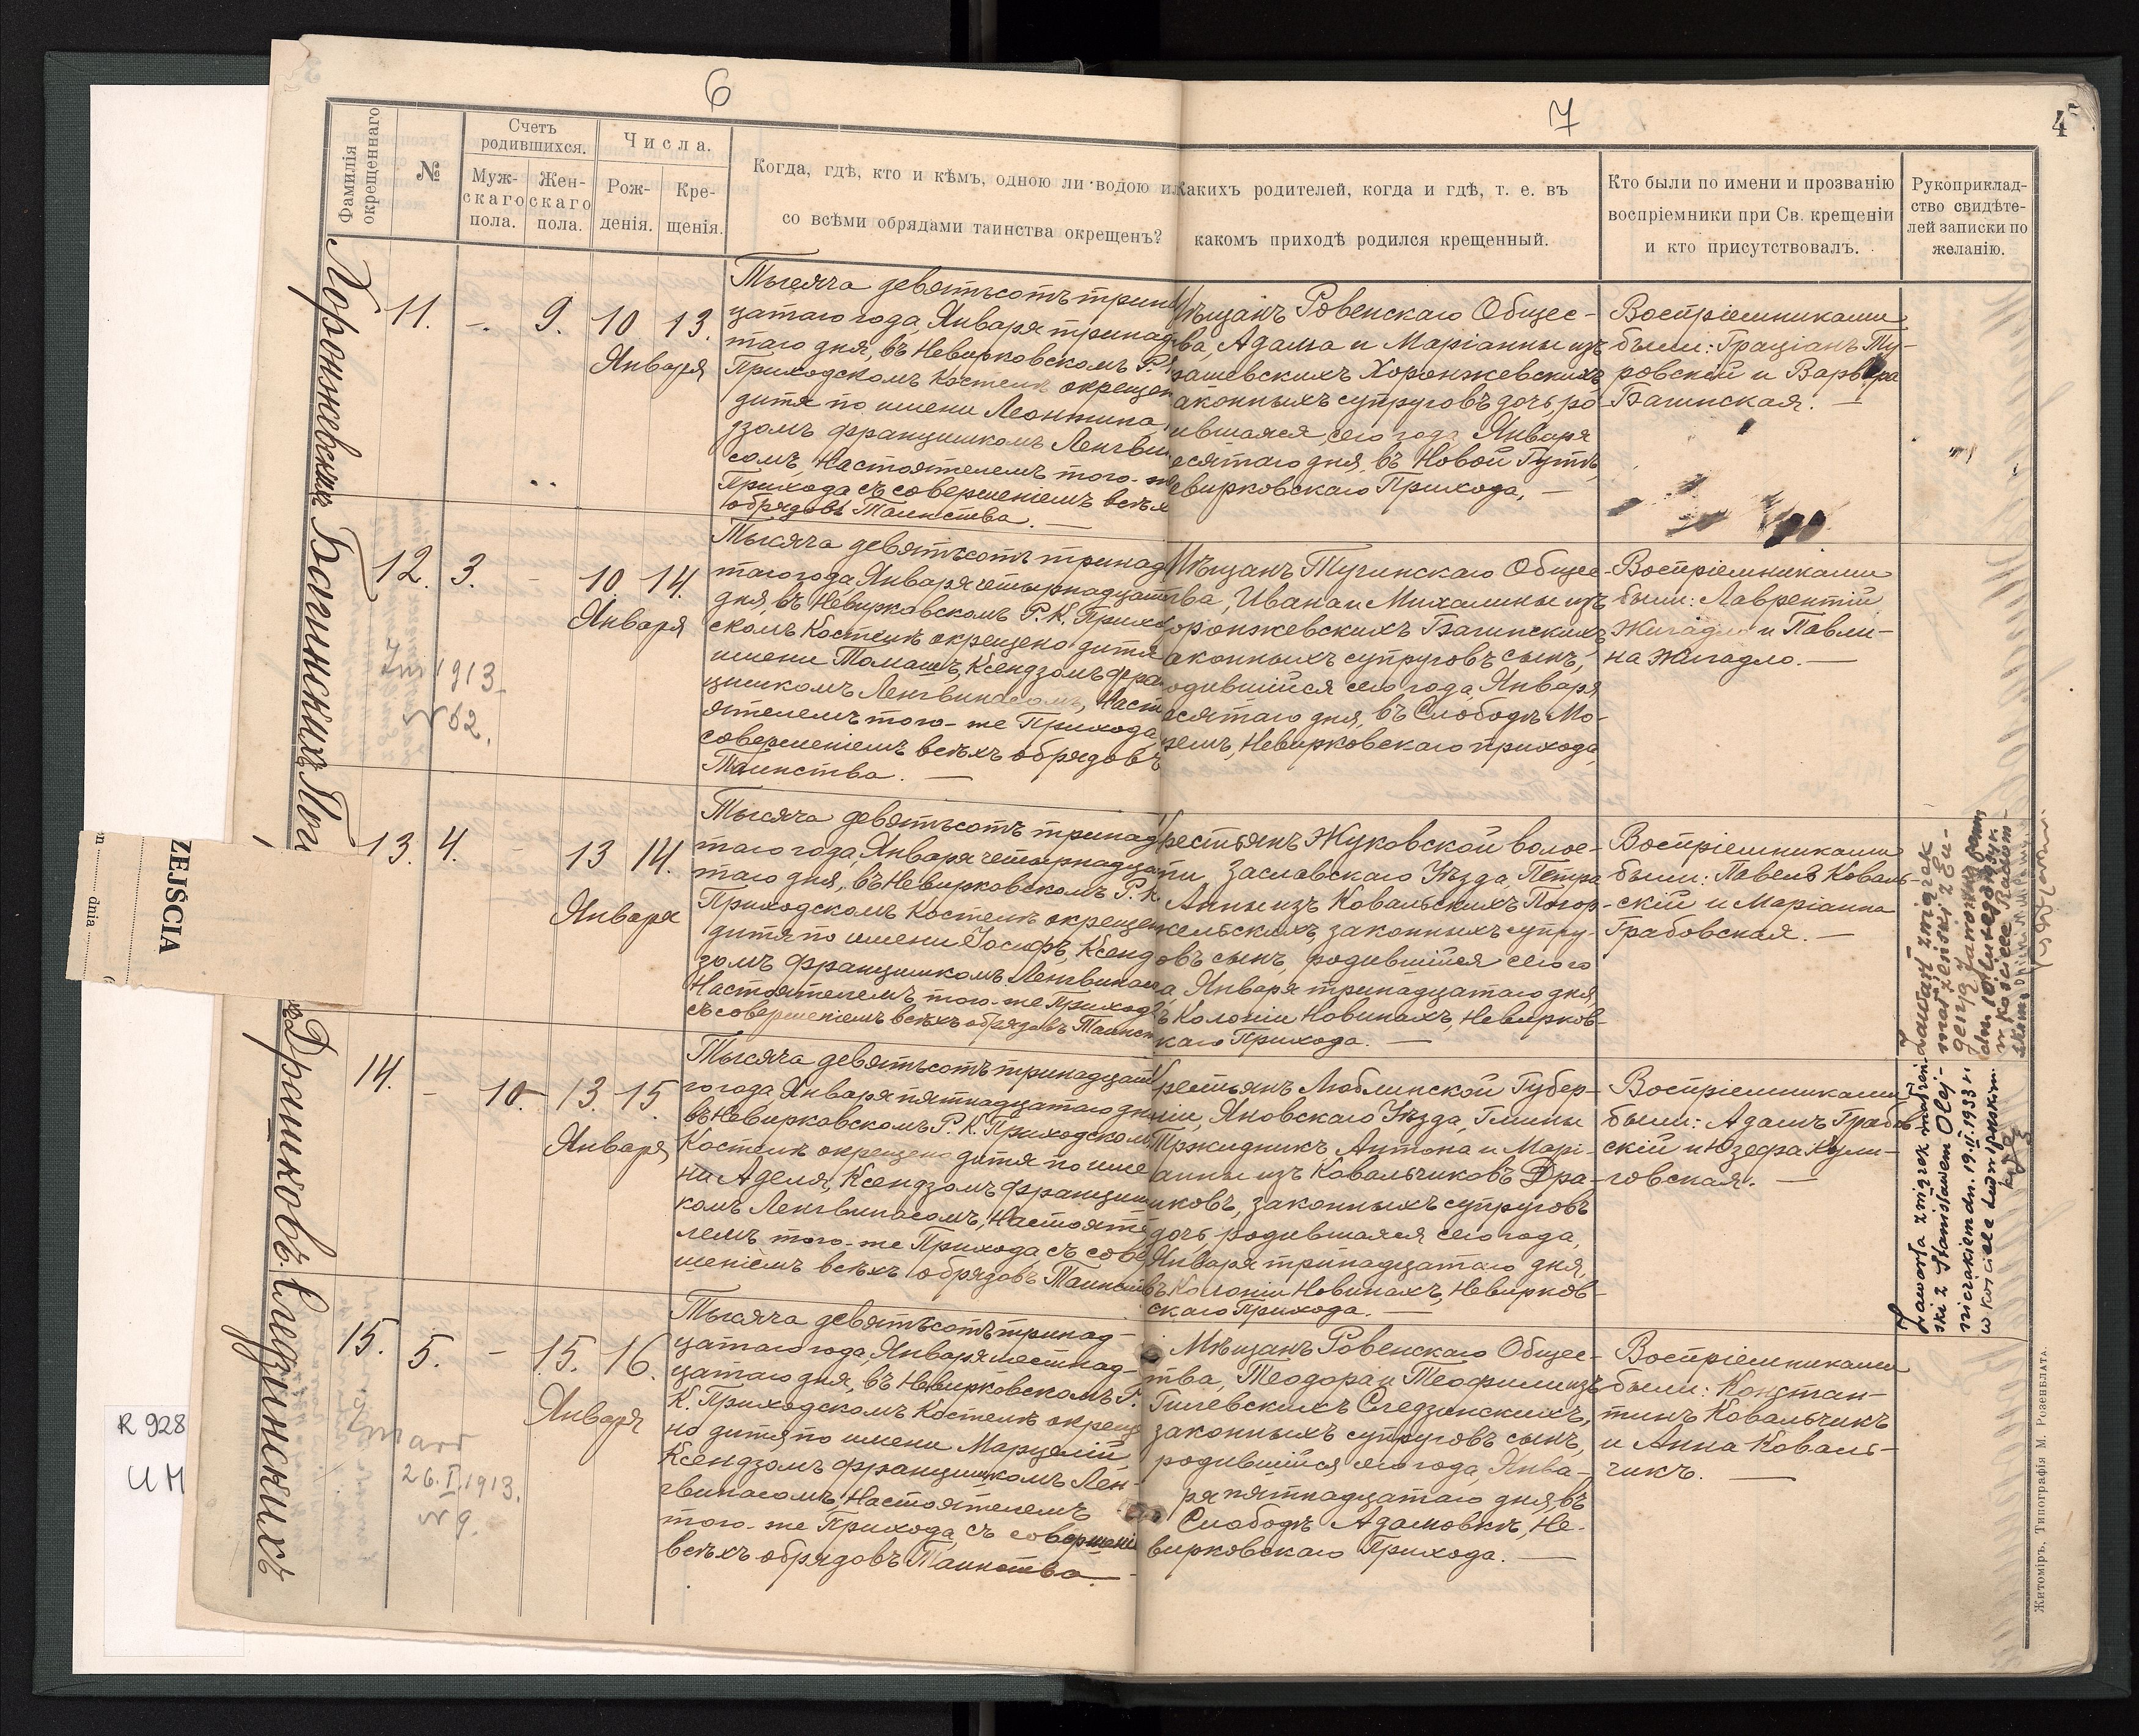 6
7
4
Фамилія окрещеннаго
№
Счетъ родившихся.
Мужскаго пола.
Женскаго пола.
Числа.
Рожденія.
Крещенія.
Когда, гдѣ, кто и кѣмъ, одною ли водою или
со всѣми обрядами таинства окрещенъ?
Какихъ родителей, когда и гдѣ, т. е. въ
какомъ приходѣ родился крещенный.
Кто были по имени и прозванію
воспріемники при Св. крещеніи
и кто присутствовалъ.
Рукоприклад-
ство свидѣте-
лей записки по
желанію.
11. -. 9. 10 13.
Января
Тысяча девятьсотъ трина
цатаго года, Января тринад
таго дня, въ Невирковскомъ Р.
Приходскомъ Костелѣ окрещен
дитя по имени Леонтина,
дзомъ Францишкомъ Ленгви
сомъ, Настоятелемъ того-же
Прихода съ совершеніемъ всѣхъ
обрядовъ Таинства. —
Мѣщанъ Ровенскаго Общес-
ва, Адама и Маріанны изъ
Хоронжевскихъ
аконныхъ супруговъ дочь, ро
ившаяся сего года Января
есятаго дня, въ Новой Гутѣ,
евирковскаго Прихода, —
Воспріемниками
были: Граціанъ Ту-
ровскій и Варвара
Багинская. —
Багинскихъ
12. 3. - 10 14.
Января
Тысяча девятьсотъ тринад
таго года, Января четырнадцат
дня, въ Невирковскомъ Р. К. Прихо
скомъ Костелѣ окрещено дитя
имени Томашъ, Ксендзомъ Фра
цишкомъ Ленгвинасомъ, Наст
ятелемъ того-же Прихода
совершеніемъ всѣхъ обрядовъ
Таинства. —
Мѣщанъ Тучинскаго Общес-
тва, Ивана и Михалины изъ
оронжевскихъ Багинскихъ
аконныхъ супруговъ сынъ,
одившійся сего года, Января
есятаго дня, въ Слободѣ Мо-
Невирковскаго прихода,
Воспріемниками
были: Лаврентій
Жигадло и Павли-
на Жигадло. —
1913
N 62.
13. 4. - 13 14.
Января
Тысяча девятьсотъ тринад
таго года, Января четырнадца
таго дня, въ Невирковскомъ Р. К.
Приходскомъ Костелѣ окрещен
дитя по имени Іосифъ, Ксенд
зомъ Францишкомъ Ленгвинасом
Настоятелемъ того-же Приход
съ совершеніемъ всѣхъ обрядовъ Таинст
рестьянъ Жуковской волос-
ти, Заславскаго Уѣзда, Петра
Анны изъ Ковальскихъ Погор-
жельскихъ, законныхъ супру-
овъ сынъ, родившійся сего го
а, Января тринадцатаго дня,
ъ Колоніи Новинахъ, Невирков-
скаго Прихода. —
Воспріемниками
были: Павелъ Коваль-
скій и Маріанна
Грабовская. —
14. - 10 13. 15.
Января
Тысяча девятьсотъ тринадцат
го года, Января пятнадцатаго дн
въ Невирковскомъ Р. К. Приходском
Костелѣ окрещено дитя по име
ни Аделя, Ксендзомъ Францишк
комъ Ленгвинасомъ, Настояте
лемъ того-же Прихода съ совер
шеніемъ всѣхъ обрядовъ Таинств
рестьянъ Люблинской Губер-
ніи, Яновскаго Уѣзда, Гмины
Тржидникъ Антона и Марі-
анны изъ Ковальчиковъ Дра-
иковъ, законныхъ супруговъ
дочь, родившаяся сего года,
Января тринадцатаго дня,
въ Колоніи Новинахъ, Невирков-
скаго Прихода. —
Воспріемниками
были: Адамъ Грабов-
скій и Юзефа Кули-
говская. —
Zawarł związek
małżeński z Eu-
genją
dn. 10 lutego
w kościele
Zawarła związek małżeń-
ski z Stanisławem Olej-
niczakiem dn. 19.II.1933 r.
w kościele Ludwipolskim.
Следзинскихъ
15. 5. - 15. 16.
Января
Тысяча девятьсотъ тринад-
цатаго года, Января шестнад-
цатаго дня, въ Невирковскомъ Р.
К. Приходскомъ Костелѣ окреще
но дитя по имени Марцелій,
Ксендзомъ Францишкомъ Лен-
гвинасомъ, Настоятелемъ
того-же Прихода, съ совершені
всѣхъ обрядовъ Таинства. —
Мѣщанъ Ровенскаго Общес-
тва, Теодора и Теофили изъ
Гилевскихъ Следзинскихъ,
законныхъ супруговъ сынъ,
родившійся сего года, Янва-
ря пятнадцатаго дня, въ
Слободѣ Адамовкѣ, Не-
вирковскаго Прихода. —
Воспріемниками
были: Констан-
тинъ Ковальчикъ
и Анна Коваль-
чикъ. —
Zmarł
26.I.1913.
N 9.
ZEJŚCIA
dnia
R 928
UM
Житоміръ, Типографія М. Розенблата.